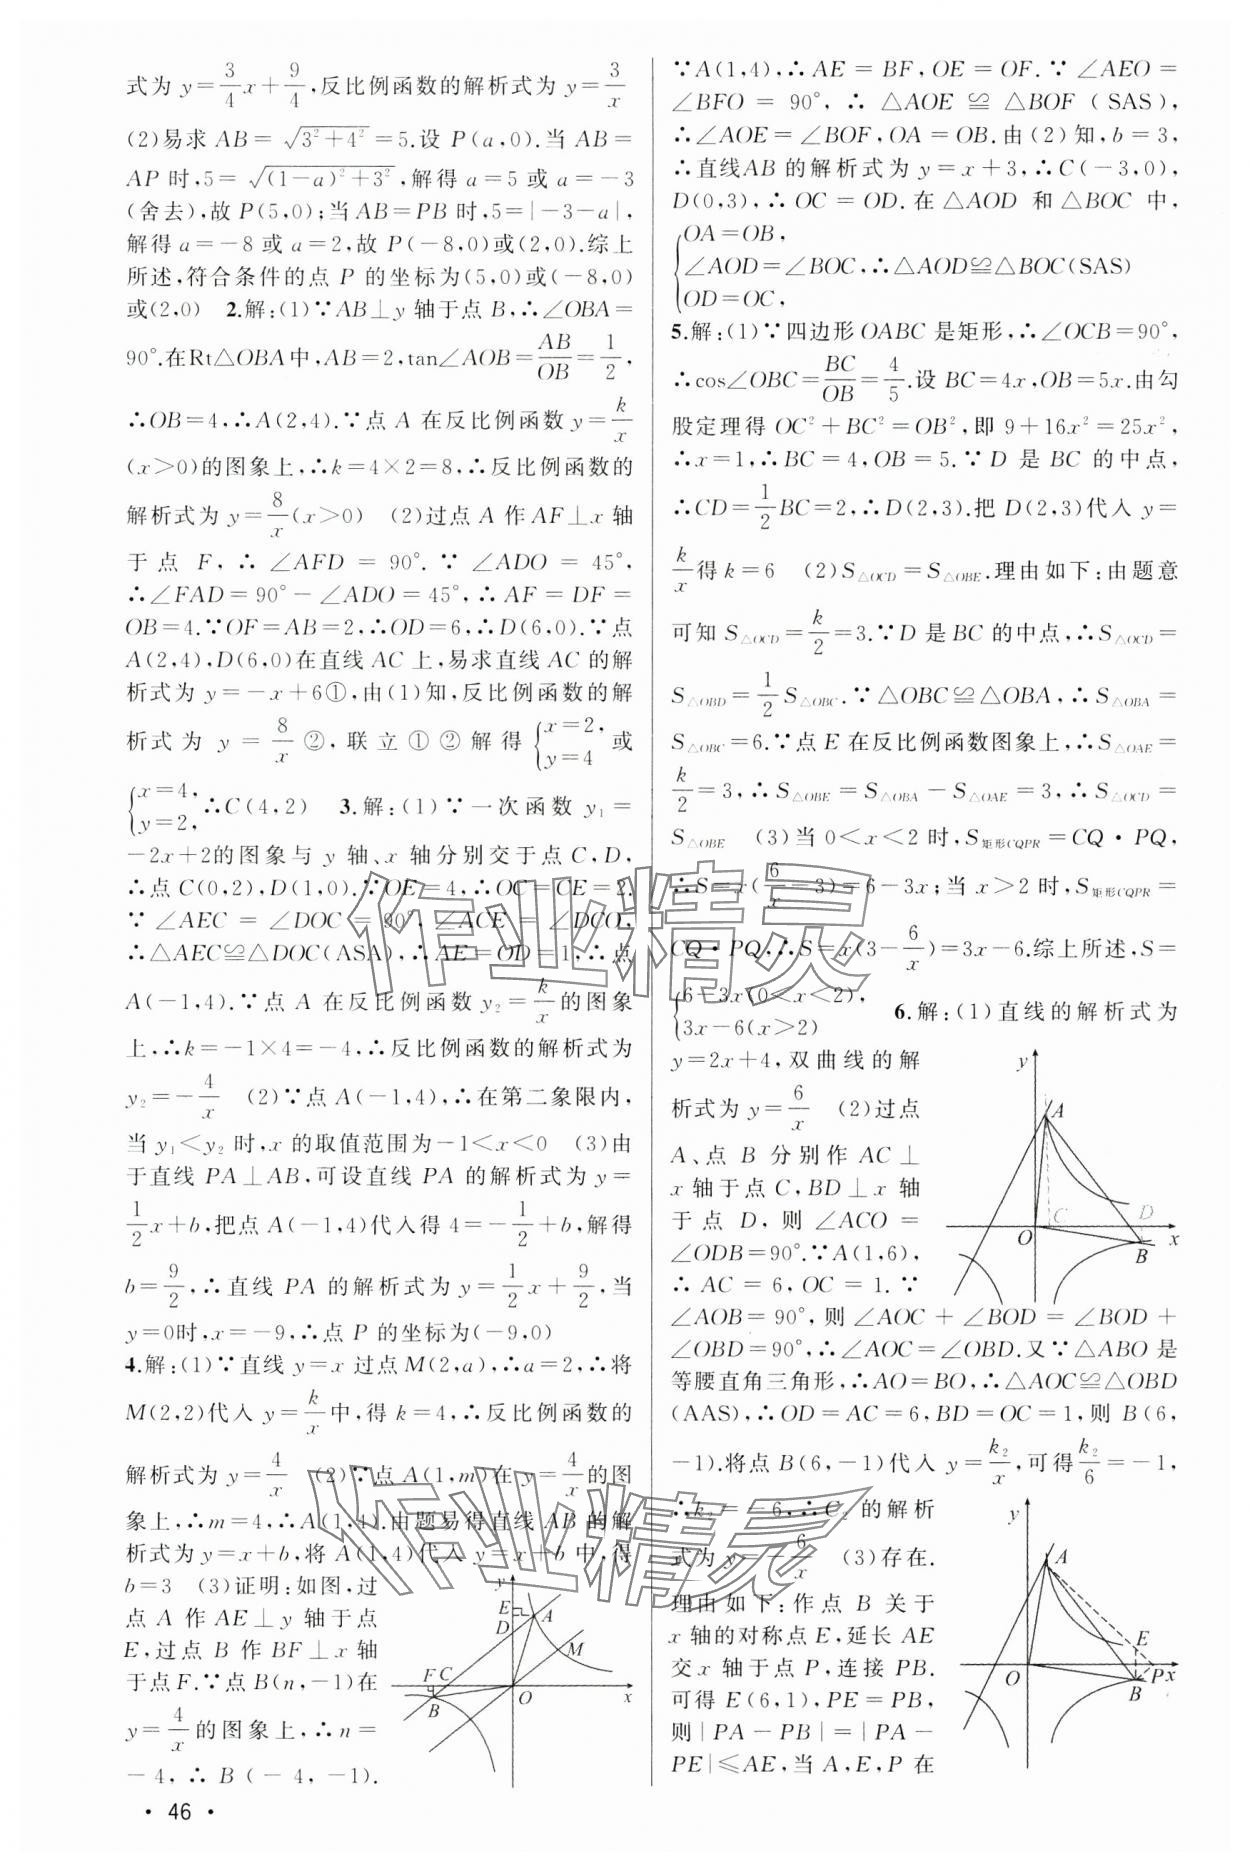 式为 y=3/4x+9/4,反比例函数的解析式为 y=3/x
(2)易求 AB=√(3²+4²)=5.设 P(a,0).当 AB=
AP 时,5=√((1-a)²+3²),解得 a=5 或 a=-3
(舍去),故 P(5,0);当 AB=PB 时,5=|-3-a|,
解得 a=-8 或 a=2,故 P(-8,0)或(2,0).综上
所述,符合条件的点 P 的坐标为(5,0)或(-8,0)
或(2,0) 2.解:(1)∵AB⊥y 轴于点 B,∴∠OBA=
90°.在Rt△OBA中,AB=2,tan∠AOB=AB/OB=1/2,
∴OB=4,∴A(2,4).∵点 A 在反比例函数 y=k/x
(x>0)的图象上,∴k=4×2=8,∴反比例函数的
解析式为 y=8/x(x>0) (2)过点 A 作 AF⊥x 轴
于点 F,∴∠AFD=90°.∵∠ADO=45°,
∴∠FAD=90°-∠ADO=45°,∴AF=DF=
OB=4.∵OF=AB=2,∴OD=6,∴D(6,0).∵点
A(2,4),D(6,0)在直线 AC 上,易求直线 AC 的解
析式为 y=-x+6①,由(1)知,反比例函数的解
析式为 y=8/x②,联立①②解得{x=2,y=4 或
{x=4,y=2,∴C(4,2) 3.解:(1)∵一次函数 y₁=
-2x+2的图象与 y 轴、x 轴分别交于点 C,D,
∴点 C(0,2),D(1,0).∵OE=4,∴OC=CE=2.
∵∠AEC=∠DOC=90°,∠ACE=∠DCO,
∴△AEC≌△DOC(ASA),∴AE=OD=1,∴点
A(-1,4).∵点 A 在反比例函数 y₂=k/x的图象
上,∴k=-1×4=-4,∴反比例函数的解析式为
y₂=-4/x (2)∵点 A(-1,4),∴在第二象限内,
当 y₁<y₂ 时,x 的取值范围为-1<x<0 (3)由
于直线 PA⊥AB,可设直线 PA 的解析式为 y=
1/2x+b,把点 A(-1,4)代入得 4=-1/2+b,解得
b=9/2,∴直线 PA 的解析式为 y=1/2x+9/2,当
y=0时,x=-9,∴点 P 的坐标为(-9,0)
4.解:(1)∵直线 y=x 过点 M(2,a),∴a=2,∴将
M(2,2)代入 y=k/x中,得 k=4,∴反比例函数的
解析式为 y=4/x (2)∵点 A(1,m)在 y=4/x的图
象上,∴m=4,∴A(1,4).由题易得直线 AB 的解
析式为 y=x+b,将 A(1,4)代入 y=x+b 中,得
b=3 (3)证明:如图,过
点 A 作 AE⊥y 轴于点
E,过点 B 作 BF⊥x 轴
于点 F.∵点 B(n,-1)在
y=4/x的图象上,∴n=
-4,∴B(-4,-1).
y
E
A
D
M
F C
B
O
x
· 46 ·
∵A(1,4),∴AE=BF,OE=OF.∵∠AEO=
∠BFO=90°,∴△AOE≌△BOF(SAS),
∴∠AOE=∠BOF,OA=OB.由(2)知,b=3,
∴直线AB 的解析式为 y=x+3,∴C(-3,0),
D(0,3),∴OC=OD.在△AOD 和△BOC 中,
{OA=OB,
∠AOD=∠BOC,∴△AOD≌△BOC(SAS)
OD=OC,
5.解:(1)∵四边形 OABC 是矩形,∴∠OCB=90°,
∴cos∠OBC=BC/OB=4/5.设 BC=4x,OB=5x.由勾
股定理得 OC²+BC²=OB²,即 9+16x²=25x²,
∴x=1,∴BC=4,OB=5.∵D 是 BC 的中点,
∴CD=1/2BC=2,∴D(2,3).把 D(2,3)代入 y=
k/x得 k=6 (2)S△OCD=S△OBE.理由如下:由题意
可知 S△OCD=k/2=3.∵D 是 BC 的中点,∴S△OCD=
S△OBD=1/2S△OBC.∵△OBC≌△OBA,∴S△OBA=
S△OBC=6.∵点 E 在反比例函数图象上,∴S△OAE=
k/2=3,∴S△OBE=S△OBA-S△OAE=3,∴S△OCD=
S△OBE (3)当 0<x<2 时,S矩形CQPR=CQ·PQ,
∴S=x(6/x-3)=6-3x;当 x>2 时,S矩形CQPR=
CQ·PQ,∴S=x(3-6/x)=3x-6.综上所述,S=
{6-3x(0<x<2),
3x-6(x>2) 6.解:(1)直线的解析式为
y=2x+4,双曲线的解
析式为 y=6/x (2)过点
A、点 B 分别作 AC⊥
x 轴于点 C,BD⊥x 轴
于点 D,则∠ACO=
∠ODB=90°.∵A(1,6),
∴AC=6,OC=1.∵
∠AOB=90°,则∠AOC+∠BOD=∠BOD+
∠OBD=90°,∴∠AOC=∠OBD.又∵△ABO 是
等腰直角三角形,∴AO=BO,∴△AOC≌△OBD
(AAS),∴OD=AC=6,BD=OC=1,则 B(6,
-1).将点 B(6,-1)代入 y=k₂/x,可得k₂/6=-1,
∴k₂=-6,∴C₂ 的解析
式为 y=-6/x (3)存在.
理由如下:作点 B 关于
x 轴的对称点 E,延长 AE
交 x 轴于点 P,连接 PB.
可得 E(6,1),PE=PB,
则|PA-PB|=|PA-
PE|≤AE,当 A,E,P 在
y
A
C
D
O
B
x
y
A
E
O
B
P
x
作业精灵
作业精灵